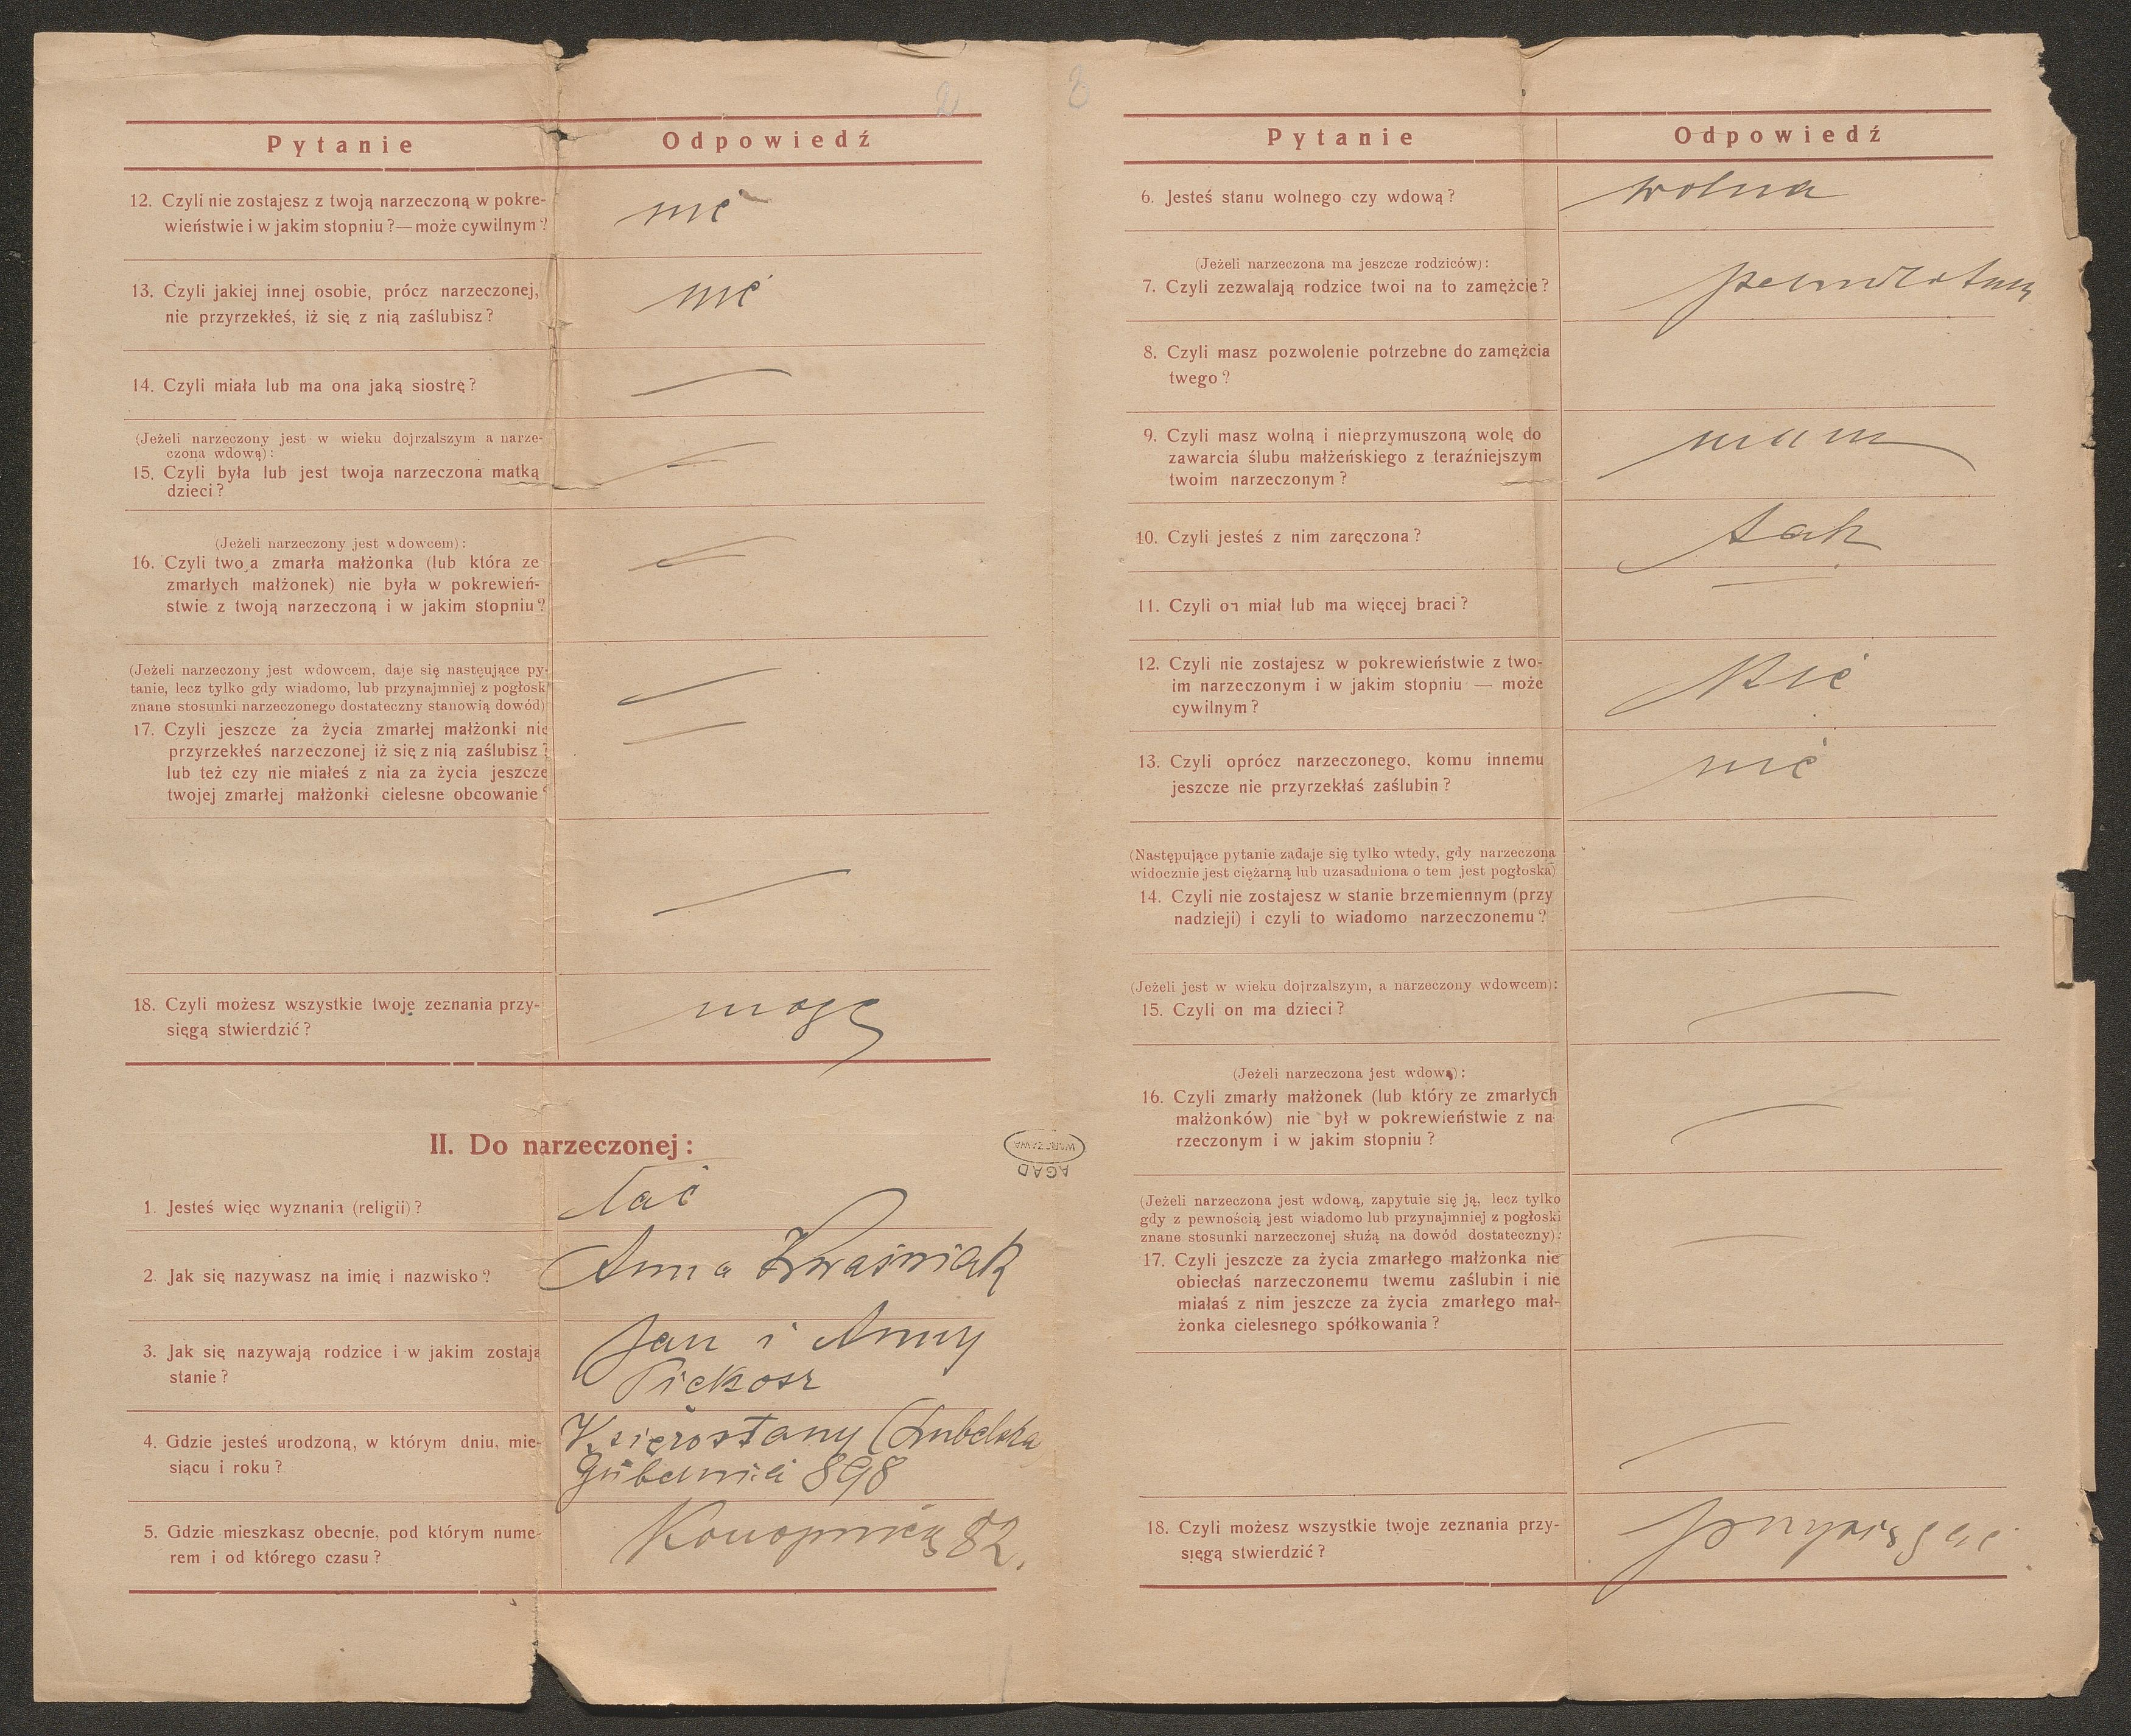 2
Pytanie
Odpowiedź
12. Czyli nie zostajesz z twoją narzeczoną w pokre-
wieństwie i w jakim stopniu?—może cywilnym?
nie
13. Czyli jakiej innej osobie, prócz narzeczonej,
nie przyrzekłeś, iż się z nią zaślubisz?
nie
14. Czyli miała lub ma ona jaką siostrę?
(Jeżeli narzeczony jest w wieku dojrzalszym a narze-
czona wdową):
15. Czyli była lub jest twoja narzeczona matką
dzieci?
(Jeżeli narzeczony jest wdowcem):
16. Czyli twoja zmarła małżonka (lub która ze
zmarłych małżonek) nie była w pokrewień-
stwie z twoją narzeczoną i w jakim stopniu?
(Jeżeli narzeczony jest wdowcem, daje się następujące py-
tanie, lecz tylko gdy wiadomo, lub przynajmniej z pogłosk
znane stosunki narzeczonego dostateczny stanowią dowód)
17. Czyli jeszcze za życia zmarłej małżonki nie
przyrzekłeś narzeczonej iż się z nią zaślubisz?
lub też czy nie miałeś z nia za życia jeszcze
twojej zmarłej małżonki cielesne obcowanie?
18. Czyli możesz wszystkie twoje zeznania przy-
sięgą stwierdzić?
mogę
II. Do narzeczonej:
1. Jesteś więc wyznania (religii)?
łać
2. Jak się nazywasz na imię i nazwisko?
Anna Kwaśniak
3. Jak się nazywają rodzice i w jakim zostają
stanie?
Jan i Anny
Piekosz
4. Gdzie jesteś urodzoną, w którym dniu, mie-
siącu i roku?
(Lubelska
Gubernia 898
5. Gdzie mieszkasz obecnie, pod którym nume-
rem i od którego czasu?
Konopnicy 82.
AGAD
WARSZAWA
3
Pytanie
Odpowiedź
6. Jesteś stanu wolnego czy wdową?
wolna
(Jeżeli narzeczona ma jeszcze rodziców):
7. Czyli zezwalają rodzice twoi na to zamężcie?
8. Czyli masz pozwolenie potrzebne do zamężcia
twego?
9. Czyli masz wolną i nieprzymuszoną wolę do
zawarcia ślubu małżeńskiego z teraźniejszym
twoim narzeczonym?
mam
10. Czyli jesteś z nim zaręczona?
tak
11. Czyli on miał lub ma więcej braci?
12. Czyli nie zostajesz w pokrewieństwie z two-
im narzeczonym i w jakim stopniu — może
cywilnym?
Nie
13. Czyli oprócz narzeczonego, komu innemu
jeszcze nie przyrzekłaś zaślubin?
nie
(Następujące pytanie zadaje się tylko wtedy, gdy narzeczona
widocznie jest ciężarną lub uzasadniona o tem jest pogłoska)
14. Czyli nie zostajesz w stanie brzemiennym (przy
nadzieji) i czyli to wiadomo narzeczonemu?
(Jeżeli jest w wieku dojrzalszym, a narzeczony wdowcem):
15. Czyli on ma dzieci?
(Jeżeli narzeczona jest wdową):
16. Czyli zmarły małżonek (lub który ze zmarłych
małżonków) nie był w pokrewieństwie z na
rzeczonym i w jakim stopniu?
(Jeżeli narzeczona jest wdową, zapytuje się ją, lecz tylko
gdy z pewnością jest wiadomo lub przynajmniej z pogłoski
znane stosunki narzeczonej służą na dowód dostateczny):
17. Czyli jeszcze za życia zmarłego małżonka nie
obiecłaś narzeczonemu twemu zaślubin i nie
miałaś z nim jeszcze za życia zmarłego mał-
żonka cielesnego spółkowania?
18. Czyli możesz wszystkie twoje zeznania przy-
sięgą stwierdzić?
przysięgać